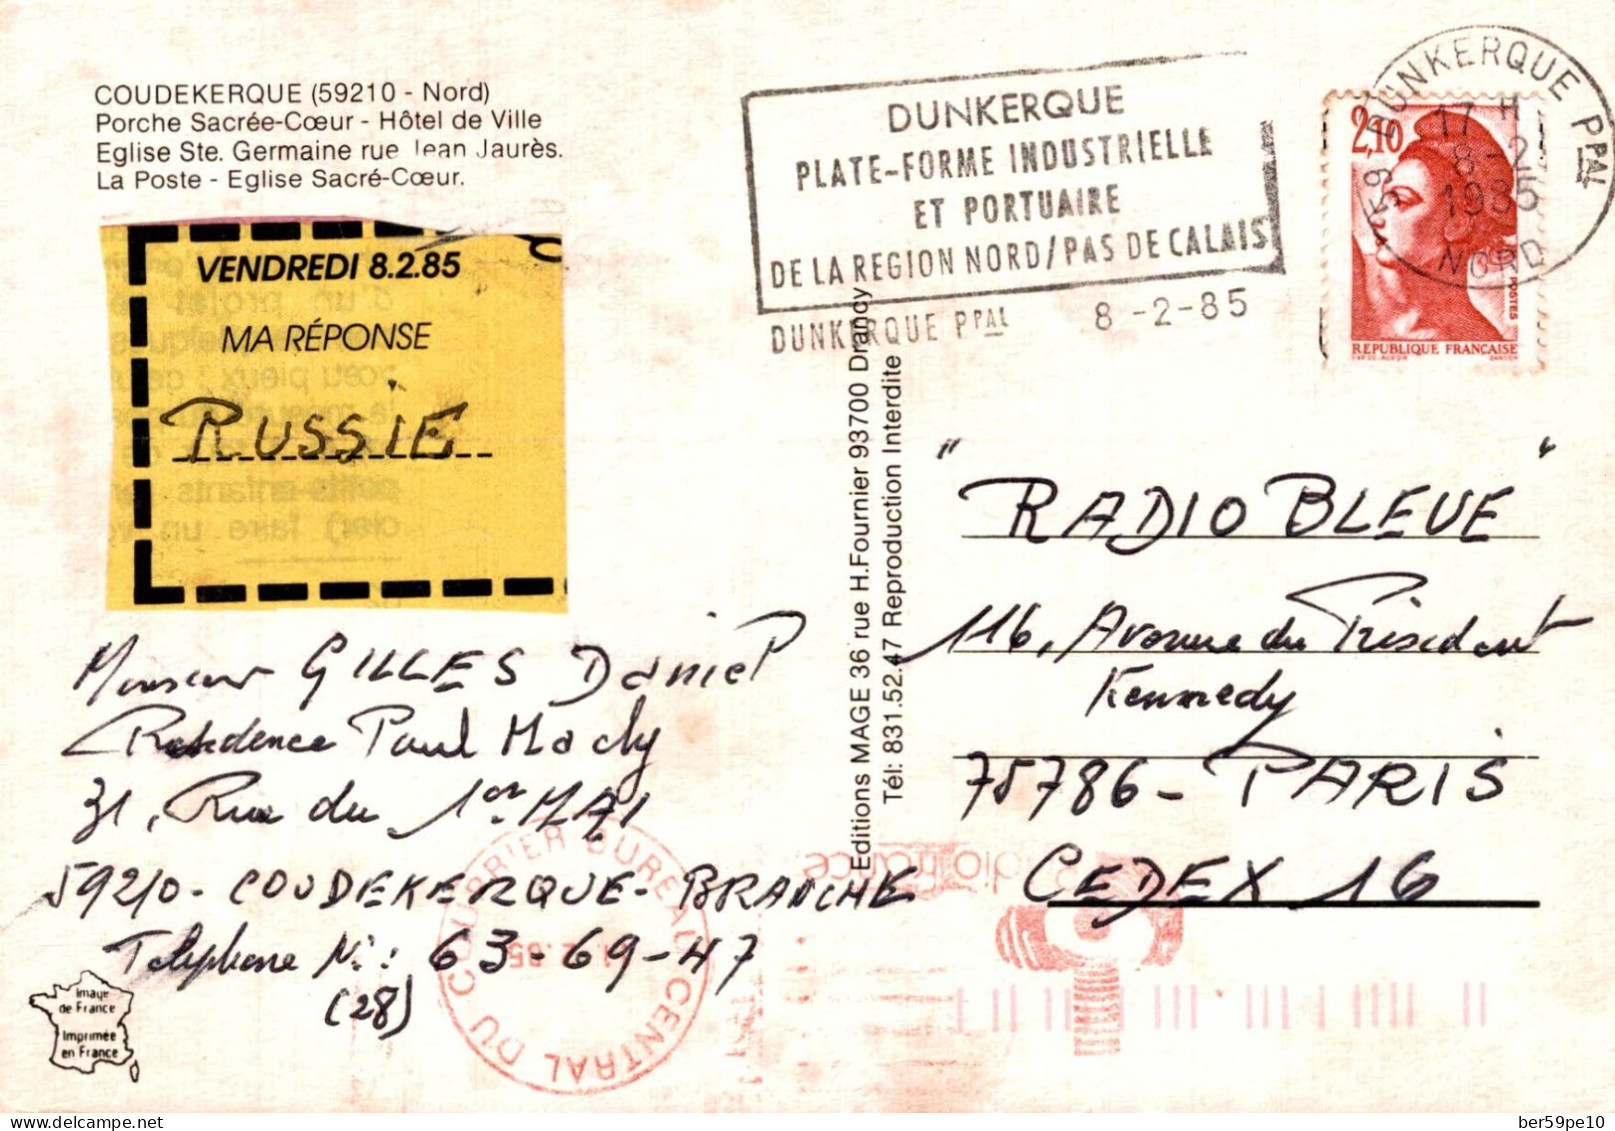 COUDEKERQUE (59210 - Nord)
Porche Sacrée-Cœur - Hôtel de Ville
Eglise Ste. Germaine rue Jean Jaurès.
La Poste - Eglise Sacré-Cœur.
VENDREDI 8.2.85
MA RÉPONSE
RUSSIE
Monsieur GILLES Daniel
Résidence Paul Machy
31, Rue du 1er MAI
59210 - COUDEKERQUE - BRANCHE
Telephone N°: 63-69-47
(28)
Image
de France
Imprimée
en France
COURRIER BUREAU CENTRAL DU
Editions MAGE 36 rue H.Fournier 93700 Drancy
Tél: 831.52.47 Reproduction Interdite
DUNKERQUE
PLATE-FORME INDUSTRIELLE
ET PORTUAIRE
DE LA REGION NORD/PAS DE CALAIS
DUNKERQUE PPAL 8-2-85
59 DUNKERQUE PPAL
17 H
8-2
1985
NORD
2,10
POSTES
REPUBLIQUE FRANÇAISE
"RADIO BLEUE"
116, Avenue du Président
Kennedy
75786 - PARIS
CEDEX 16
radio france
delcampe.net
ber59pe10